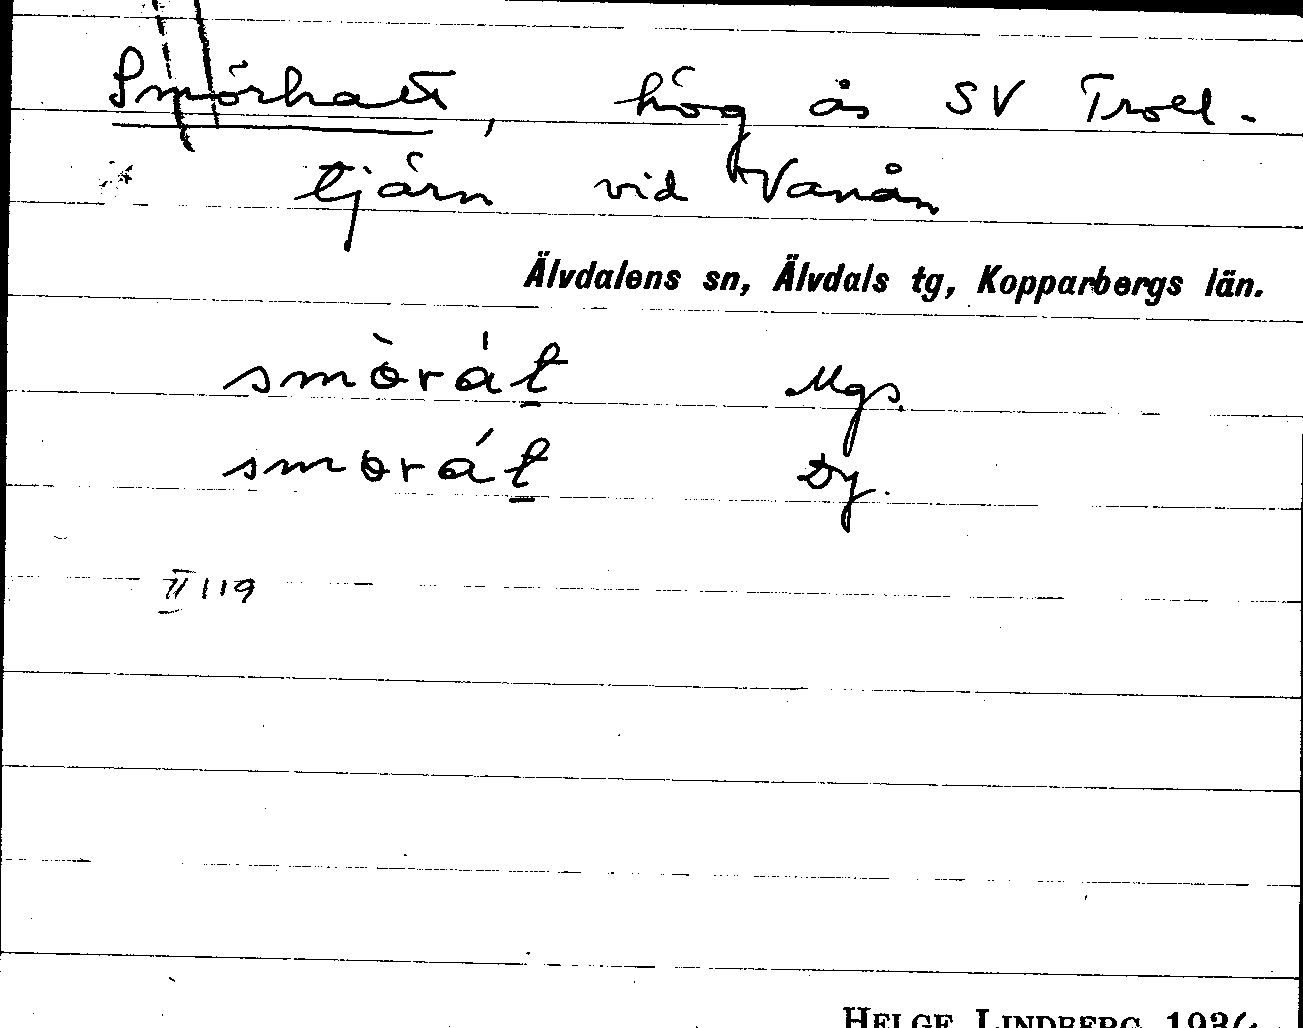 Smörhatt, hög ås SV Troll-
tjärn vid Vanån
Älvdalens sn, Älvdals tg, Kopparbergs län.
smòrát Mgs.
smorát Dy.
II 119
HELGE LINDBERG 1934